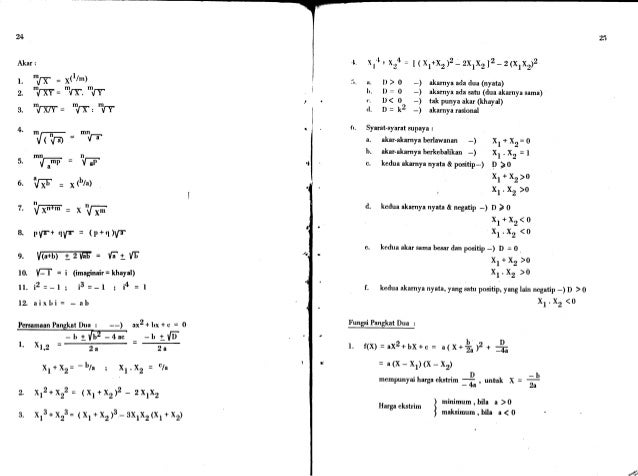 24
Akar :
1. ᵐ√X = X^(1/m)
2. ᵐ√XY = ᵐ√X. ᵐ√Y
3. ᵐ√X/Y = ᵐ√X : ᵐ√Y
4. ᵐ√(ⁿ√a) = ᵐⁿ√a
5. ᵐⁿ√a^mp = ⁿ√a^p
6. ᵃ√x^b = x^(b/a)
7. ⁿ√x^n+m = x ⁿ√x^m
8. p√r + q√r = (p+q)√r
9. √(a+b) ± 2√ab = √a ± √b
10. √-1 = i (imaginair = khayal)
11. i² = -1 ; i³ = -1 ; i⁴ = 1
12. a i x b i = - a b
Persamaan Pangkat Dua : --) ax² + bx + c = 0
1. X₁,₂ = (- b ± √b² - 4 ac) / 2 a = (- b ± √D) / 2 a
X₁ + X₂ = - b/a ; X₁ . X₂ = c/a
2. X₁² + X₂² = (X₁ + X₂)² - 2 X₁X₂
3. X₁³ + X₂³ = (X₁ + X₂)³ - 3X₁X₂ (X₁ + X₂)
25
4. X₁⁴ + X₂⁴ = [ (X₁+X₂)² - 2X₁X₂ ]² - 2 (X₁X₂)²
5. a. D > 0 -) akarnya ada dua (nyata)
b. D = 0 -) akarnya ada satu (dua akarnya sama)
c. D < 0 -) tak punya akar (khayal)
d. D = k² -) akarnya rasional
6. Syarat-syarat supaya :
a. akar-akarnya berlawanan -) X₁ + X₂ = 0
b. akar-akarnya berkebalikan -) X₁ . X₂ = 1
c. kedua akarnya nyata & positip -) D ⩾ 0
X₁ + X₂ > 0
X₁ . X₂ > 0
d. kedua akarnya nyata & negatip -) D ⩾ 0
X₁ + X₂ < 0
X₁ . X₂ < 0
e. kedua akar sama besar dan positip -) D = 0
X₁ + X₂ > 0
X₁ . X₂ > 0
f. kedua akarnya nyata, yang satu positip, yang lain negatip -) D > 0
X₁ . X₂ < 0
Fungsi Pangkat Dua :
1. f(X) = aX² + bX + c = a (X + b/2a)² + D/-4a
= a (X - X₁)(X - X₂)
mempunyai harga ekstrim D/-4a , untuk X = -b/2a
Harga ekstrim } minimum , bila a > 0
maksimum , bila a < 0